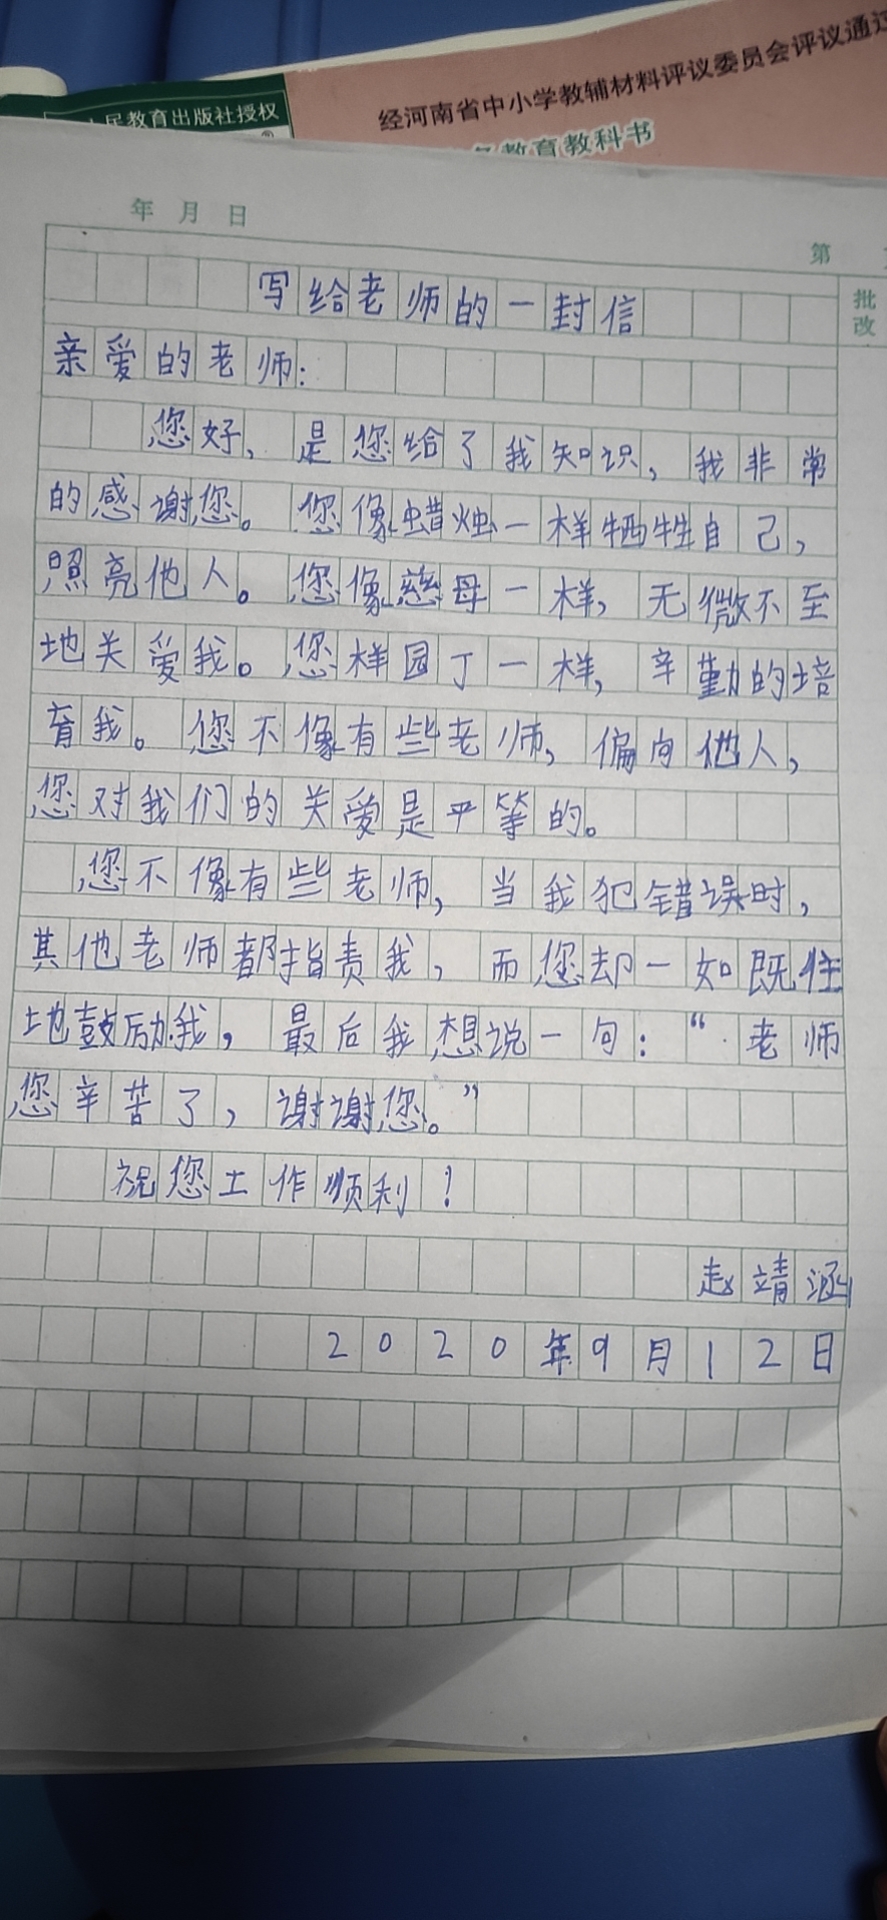 经河南省中小学教辅材料评议委员会评议通过
民教育出版社授权
教育教科书
年 月 日
第
批改
写给老师的一封信
亲爱的老师:
您好,是您给了我知识,我非常
的感谢您。您像蜡烛一样牺牲自己,
照亮他人。您像慈母一样,无微不至
地关爱我。您样园丁一样,辛勤的培
育我。您不像有些老师,偏向他人,
您对我们的关爱是平等的。
您不像有些老师,当我犯错误时,
其他老师都指责我,而您却一如既往
地鼓励我,最后我想说一句:“老师
您辛苦了,谢谢您。”
祝您工作顺利!
赵靖涵
2020年9月12日